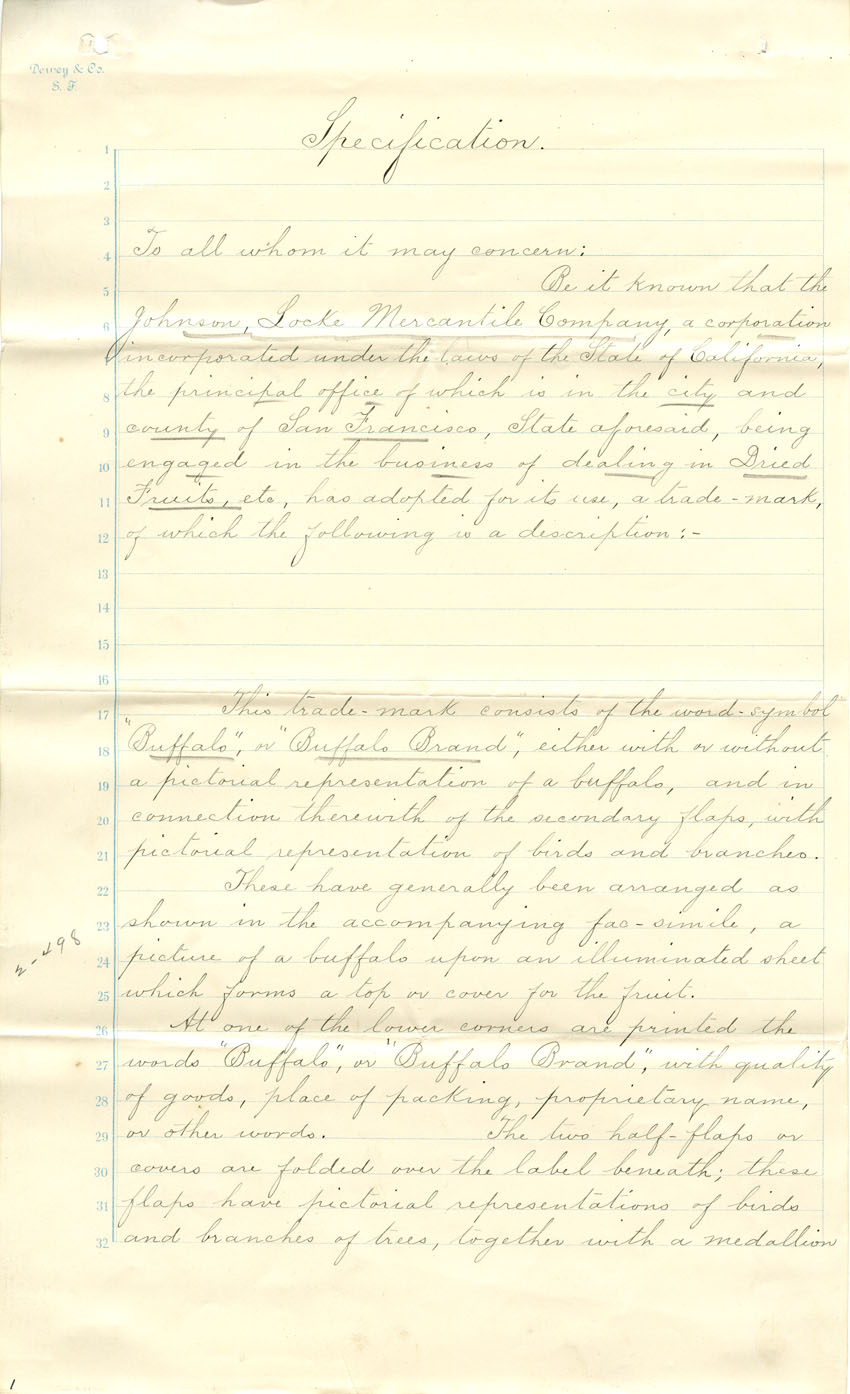 Dewey & Co.
S. F.
Specification.
1
2
3
4 To all whom it may concern:
5 Be it known that the
6 Johnson, Locke Mercantile Company, a corporation
7 incorporated under the laws of the State of California,
8 the principal office of which is in the city and
9 county of San Francisco, State aforesaid, being
10 engaged in the business of dealing in Dried
11 Fruits, etc, has adopted for its use, a trade-mark,
12 of which the following is a description:-
13
14
15
16
17 This trade-mark consists of the word-symbol
18 "Buffalo", or "Buffalo Brand", either with or without
19 a pictorial representation of a buffalo, and in
20 connection therewith of the secondary flaps, with
21 pictorial representation of birds and branches.
22 These have generally been arranged as
23 shown in the accompanying fac-simile, a
24 picture of a buffalo upon an illuminated sheet
25 which forms a top or cover for the fruit.
26 At one of the lower corners are printed the
27 words "Buffalo", or "Buffalo Brand", with quality
28 of goods, place of packing, proprietary name,
29 or other words. The two half-flaps or
30 covers are folded over the label beneath; these
31 flaps have pictorial representations of birds
32 and branches of trees, together with a medallion
2-498
1